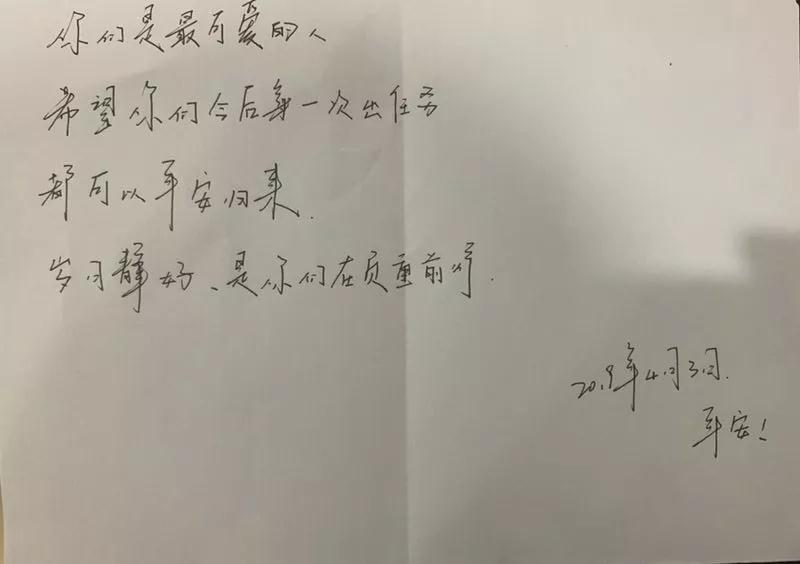 你们是最可爱的人
希望你们今后每一次出任务
都可以平安归来.
岁月静好、是你们在负重前行.
2019年4月3日.
平安!